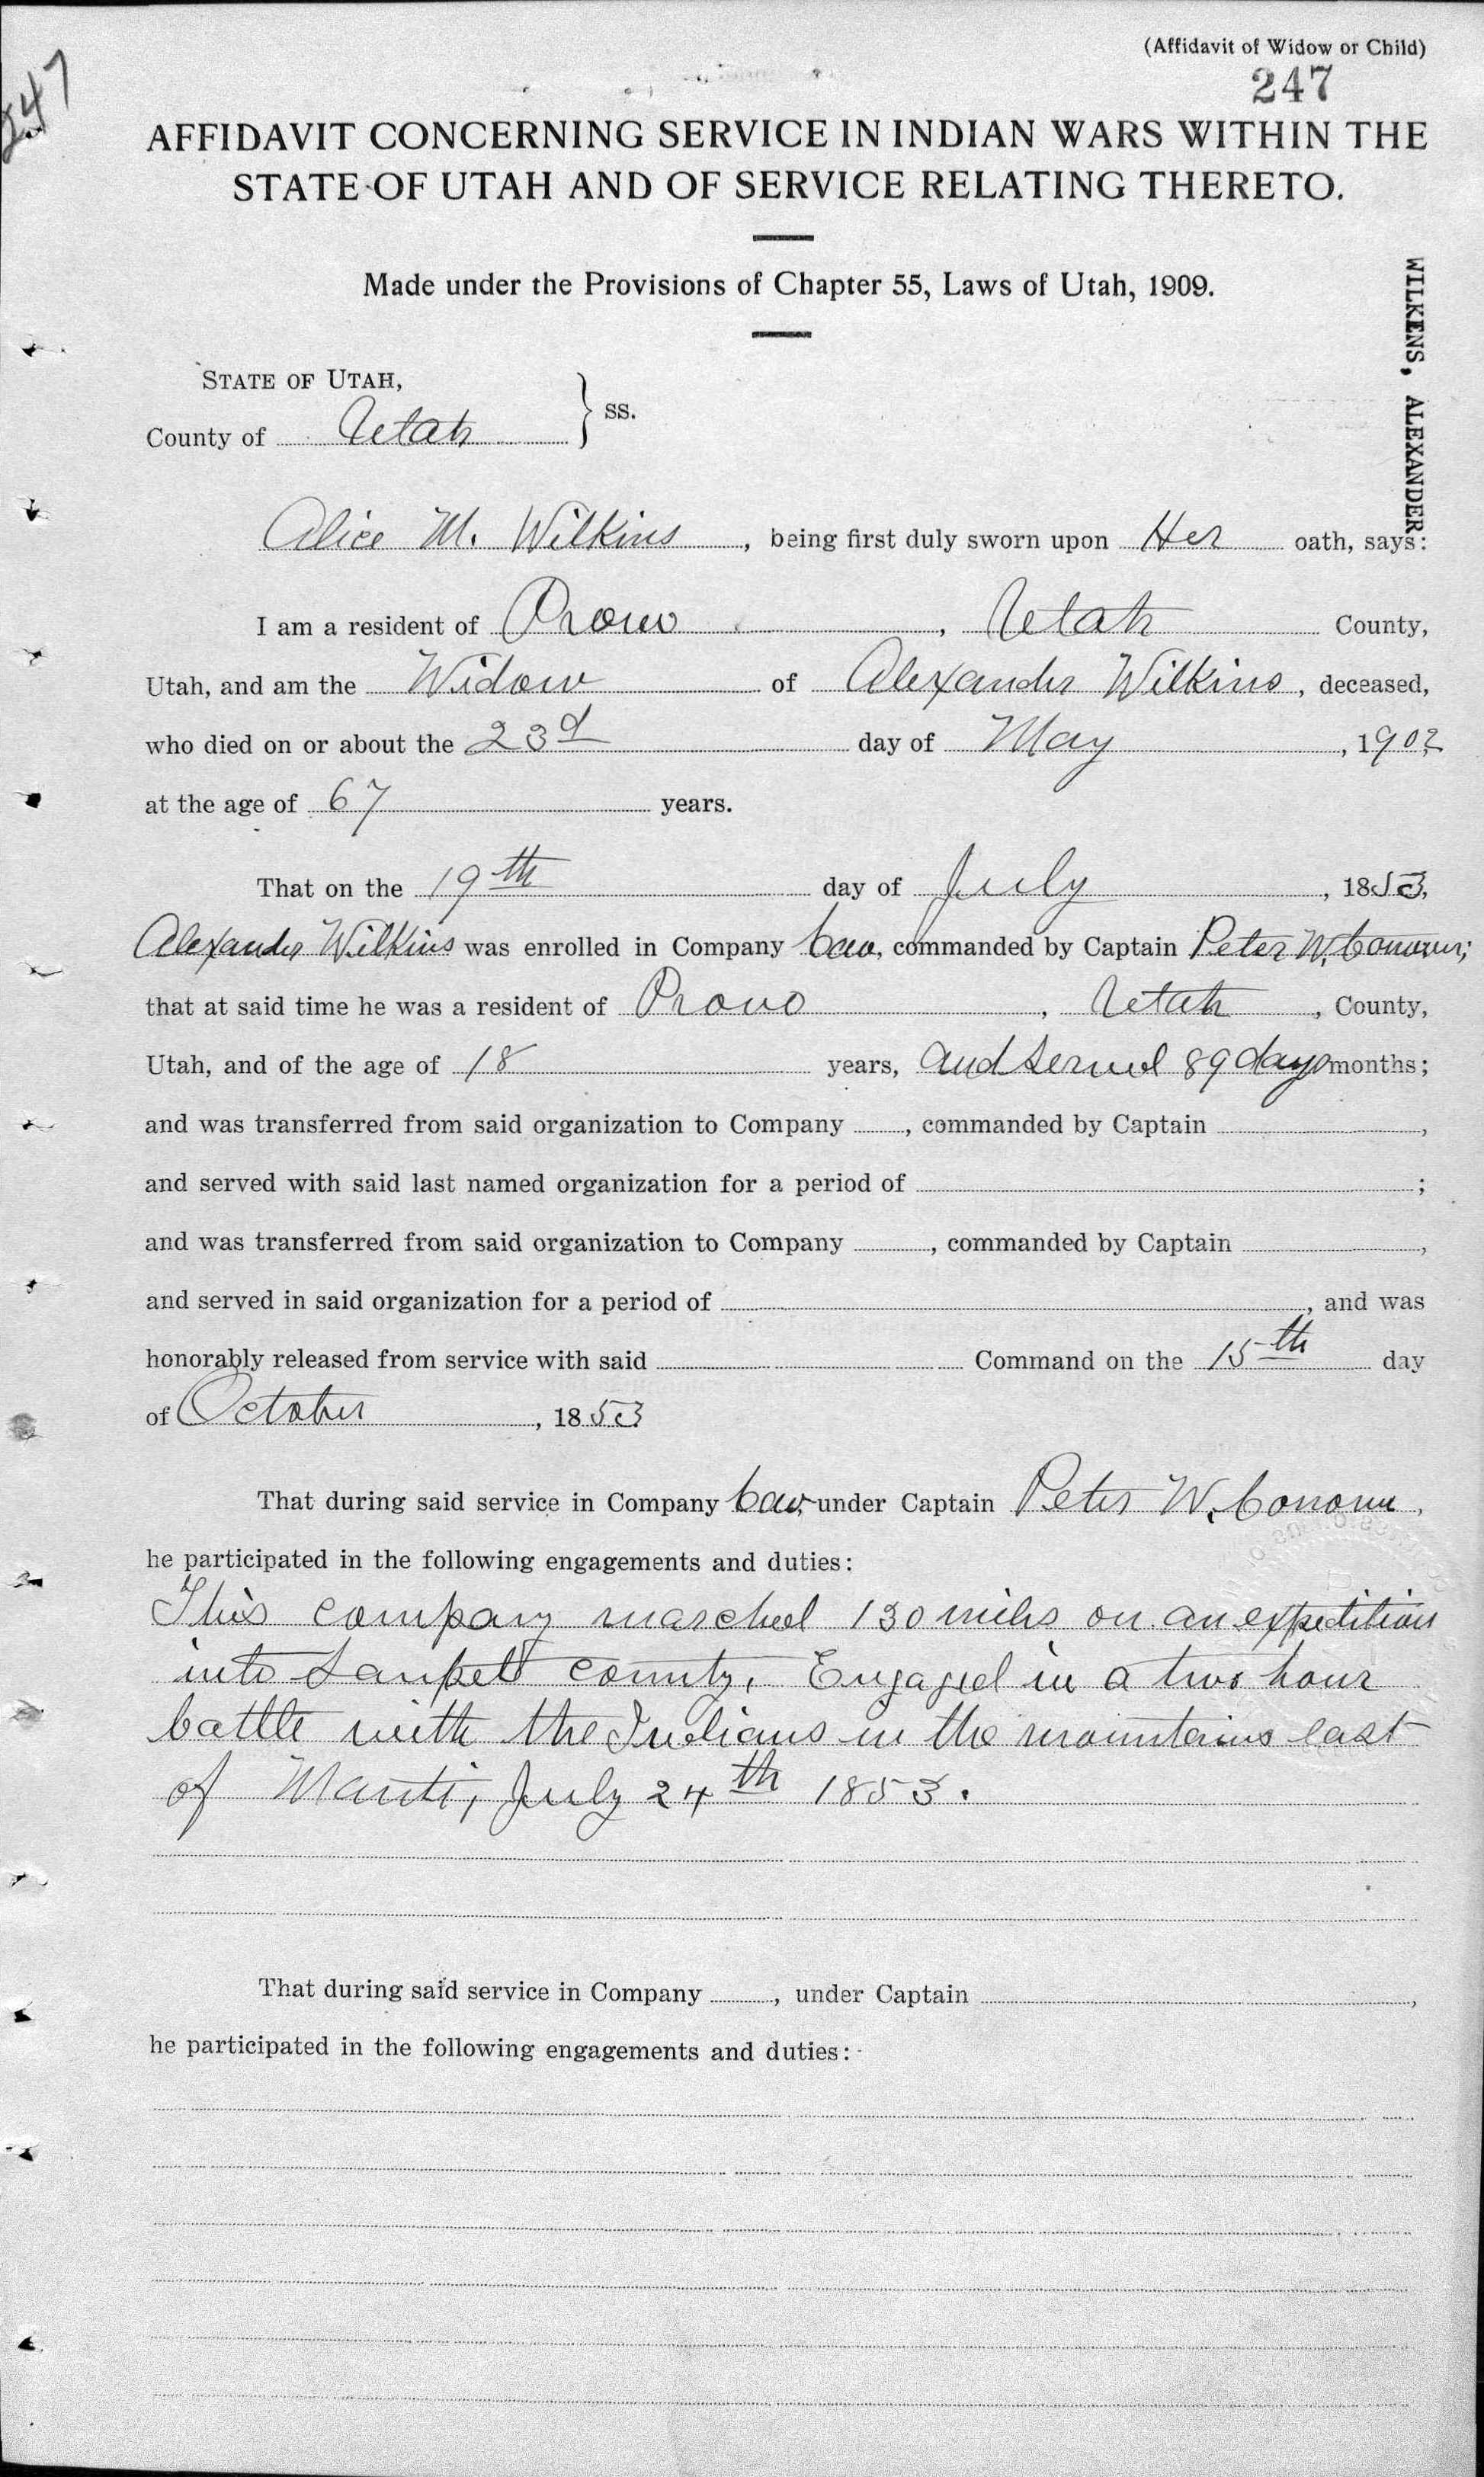 (Affidavit of Widow or Child)
247
247
AFFIDAVIT CONCERNING SERVICE IN INDIAN WARS WITHIN THE
STATE OF UTAH AND OF SERVICE RELATING THERETO.
Made under the Provisions of Chapter 55, Laws of Utah, 1909.
WILKENS, ALEXANDER
STATE OF UTAH,
County of Utah } ss.
Alice M. Wilkins, being first duly sworn upon Her oath, says:
I am a resident of Provo, Utah County,
Utah, and am the Widow of Alexander Wilkins, deceased,
who died on or about the 23d day of May, 1902
at the age of 67 years.
That on the 19th day of July, 1853,
Alexander Wilkins was enrolled in Company Cav, commanded by Captain Peter W. Conover;
that at said time he was a resident of Provo, Utah, County,
Utah, and of the age of 18 years, and served 89 days months;
and was transferred from said organization to Company , commanded by Captain ,
and served with said last named organization for a period of ;
and was transferred from said organization to Company , commanded by Captain ,
and served in said organization for a period of , and was
honorably released from service with said Command on the 15th day
of October, 1853
That during said service in Company Cav, under Captain Peter W. Conover,
he participated in the following engagements and duties:
This company marched 130 miles on an expedition
into Sanpete county. Engaged in a two hour
battle with the Indians in the mountains east
of Manti, July 24th 1853.
That during said service in Company , under Captain ,
he participated in the following engagements and duties: